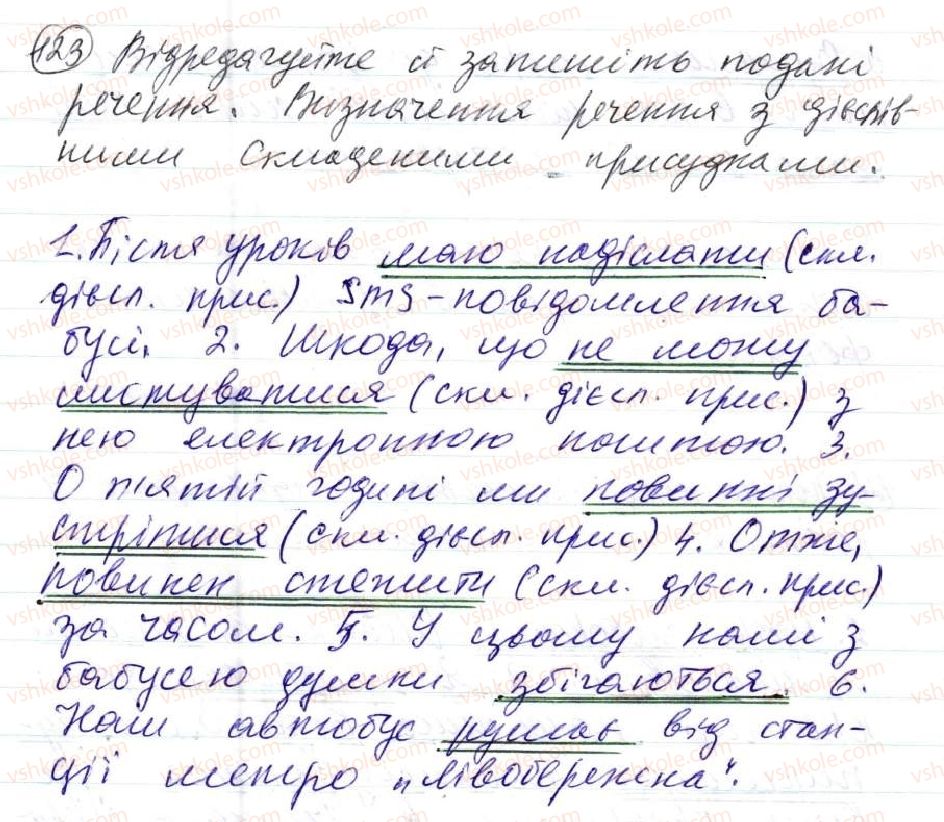 123 Відредагуйте й запишіть подані
речення. Визначення речення з дієслів-
ними складеними присудками.
1. Після уроків маю надіслати (скл.
дієсл. прис.) SMS-повідомлення ба-
бусі. 2. Шкода, що не можу
листуватися (скл. дієсл. прис.) з
нею електронною поштою. 3.
О п'ятій годині ми повинні зу-
стрітися (скл. дієсл. прис.) 4. Отже,
повинен стежити (скл. дієсл. прис.)
за часом. 5. У цьому наші з
бабусею думки збігаються. 6.
Наш автобус рушає від стан-
ції метро „Лівобережна".